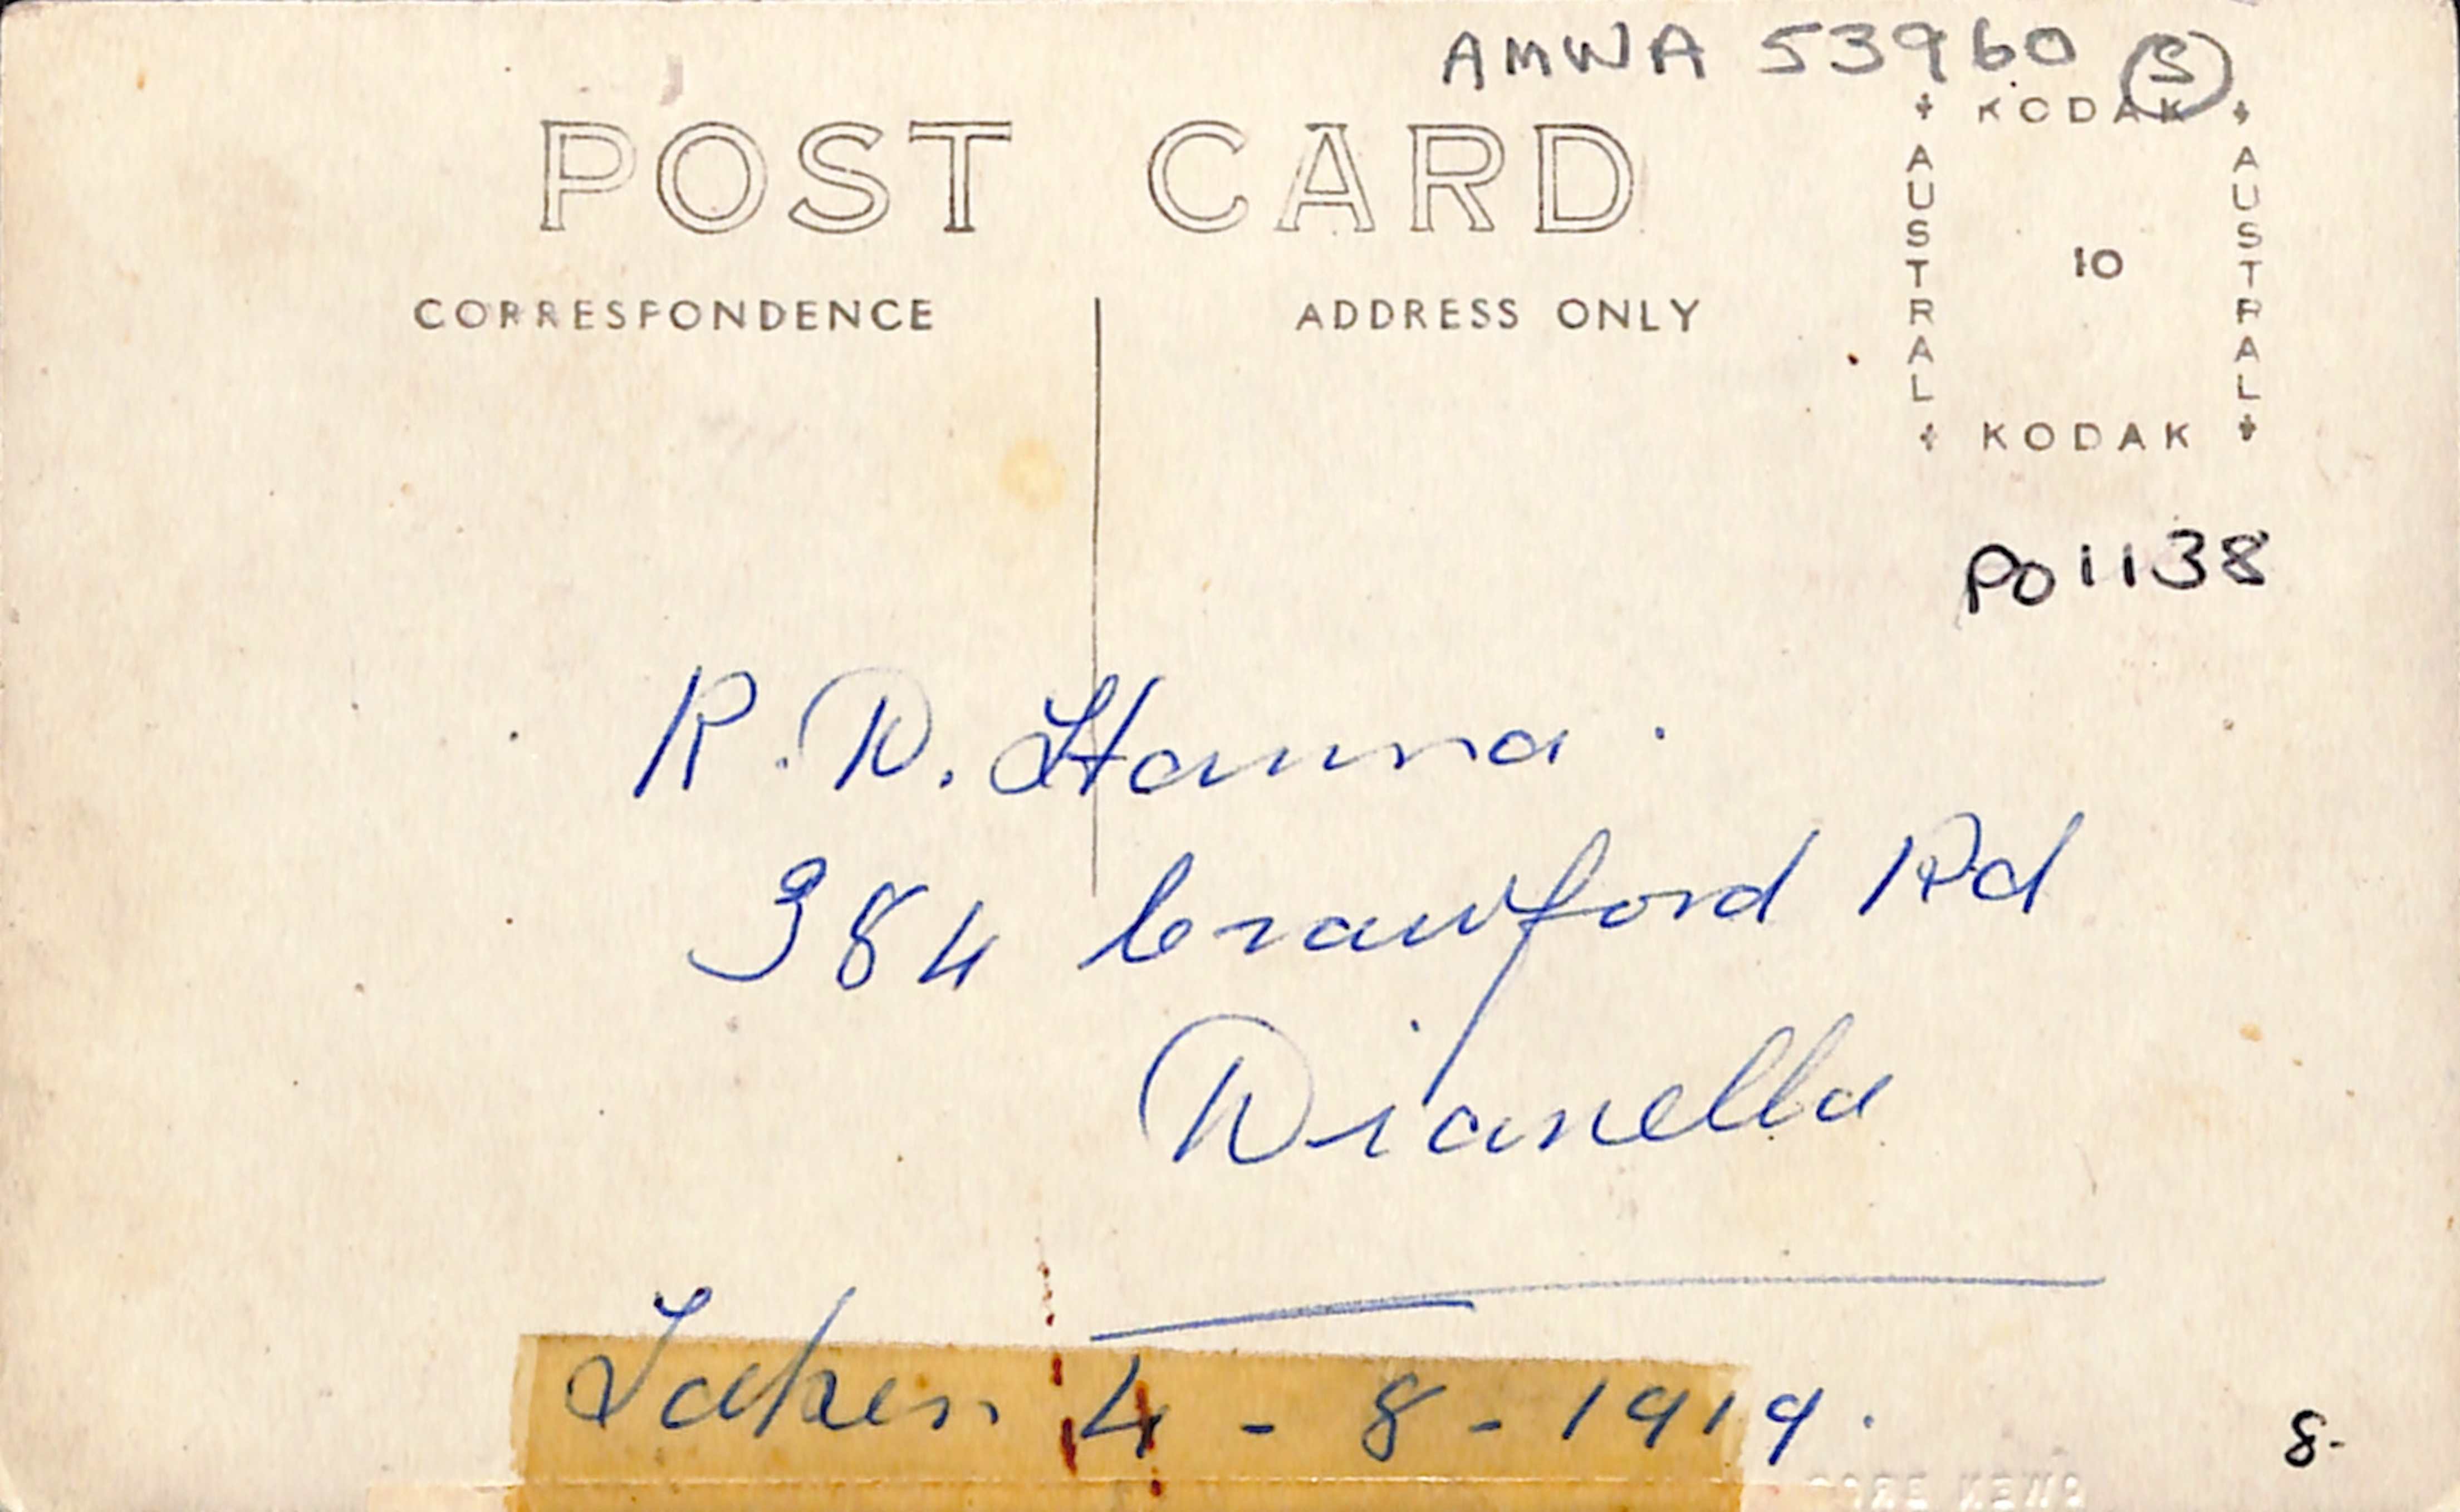 AMWA 53960 S
POST CARD
CORRESPONDENCE
ADDRESS ONLY
KODAK
AUSTRAL
10
AUSTRAL
KODAK
P01138
R. D. Hanna.
384 Crawford Rd
Dianella
Taken 4 - 8 - 1919.
8-